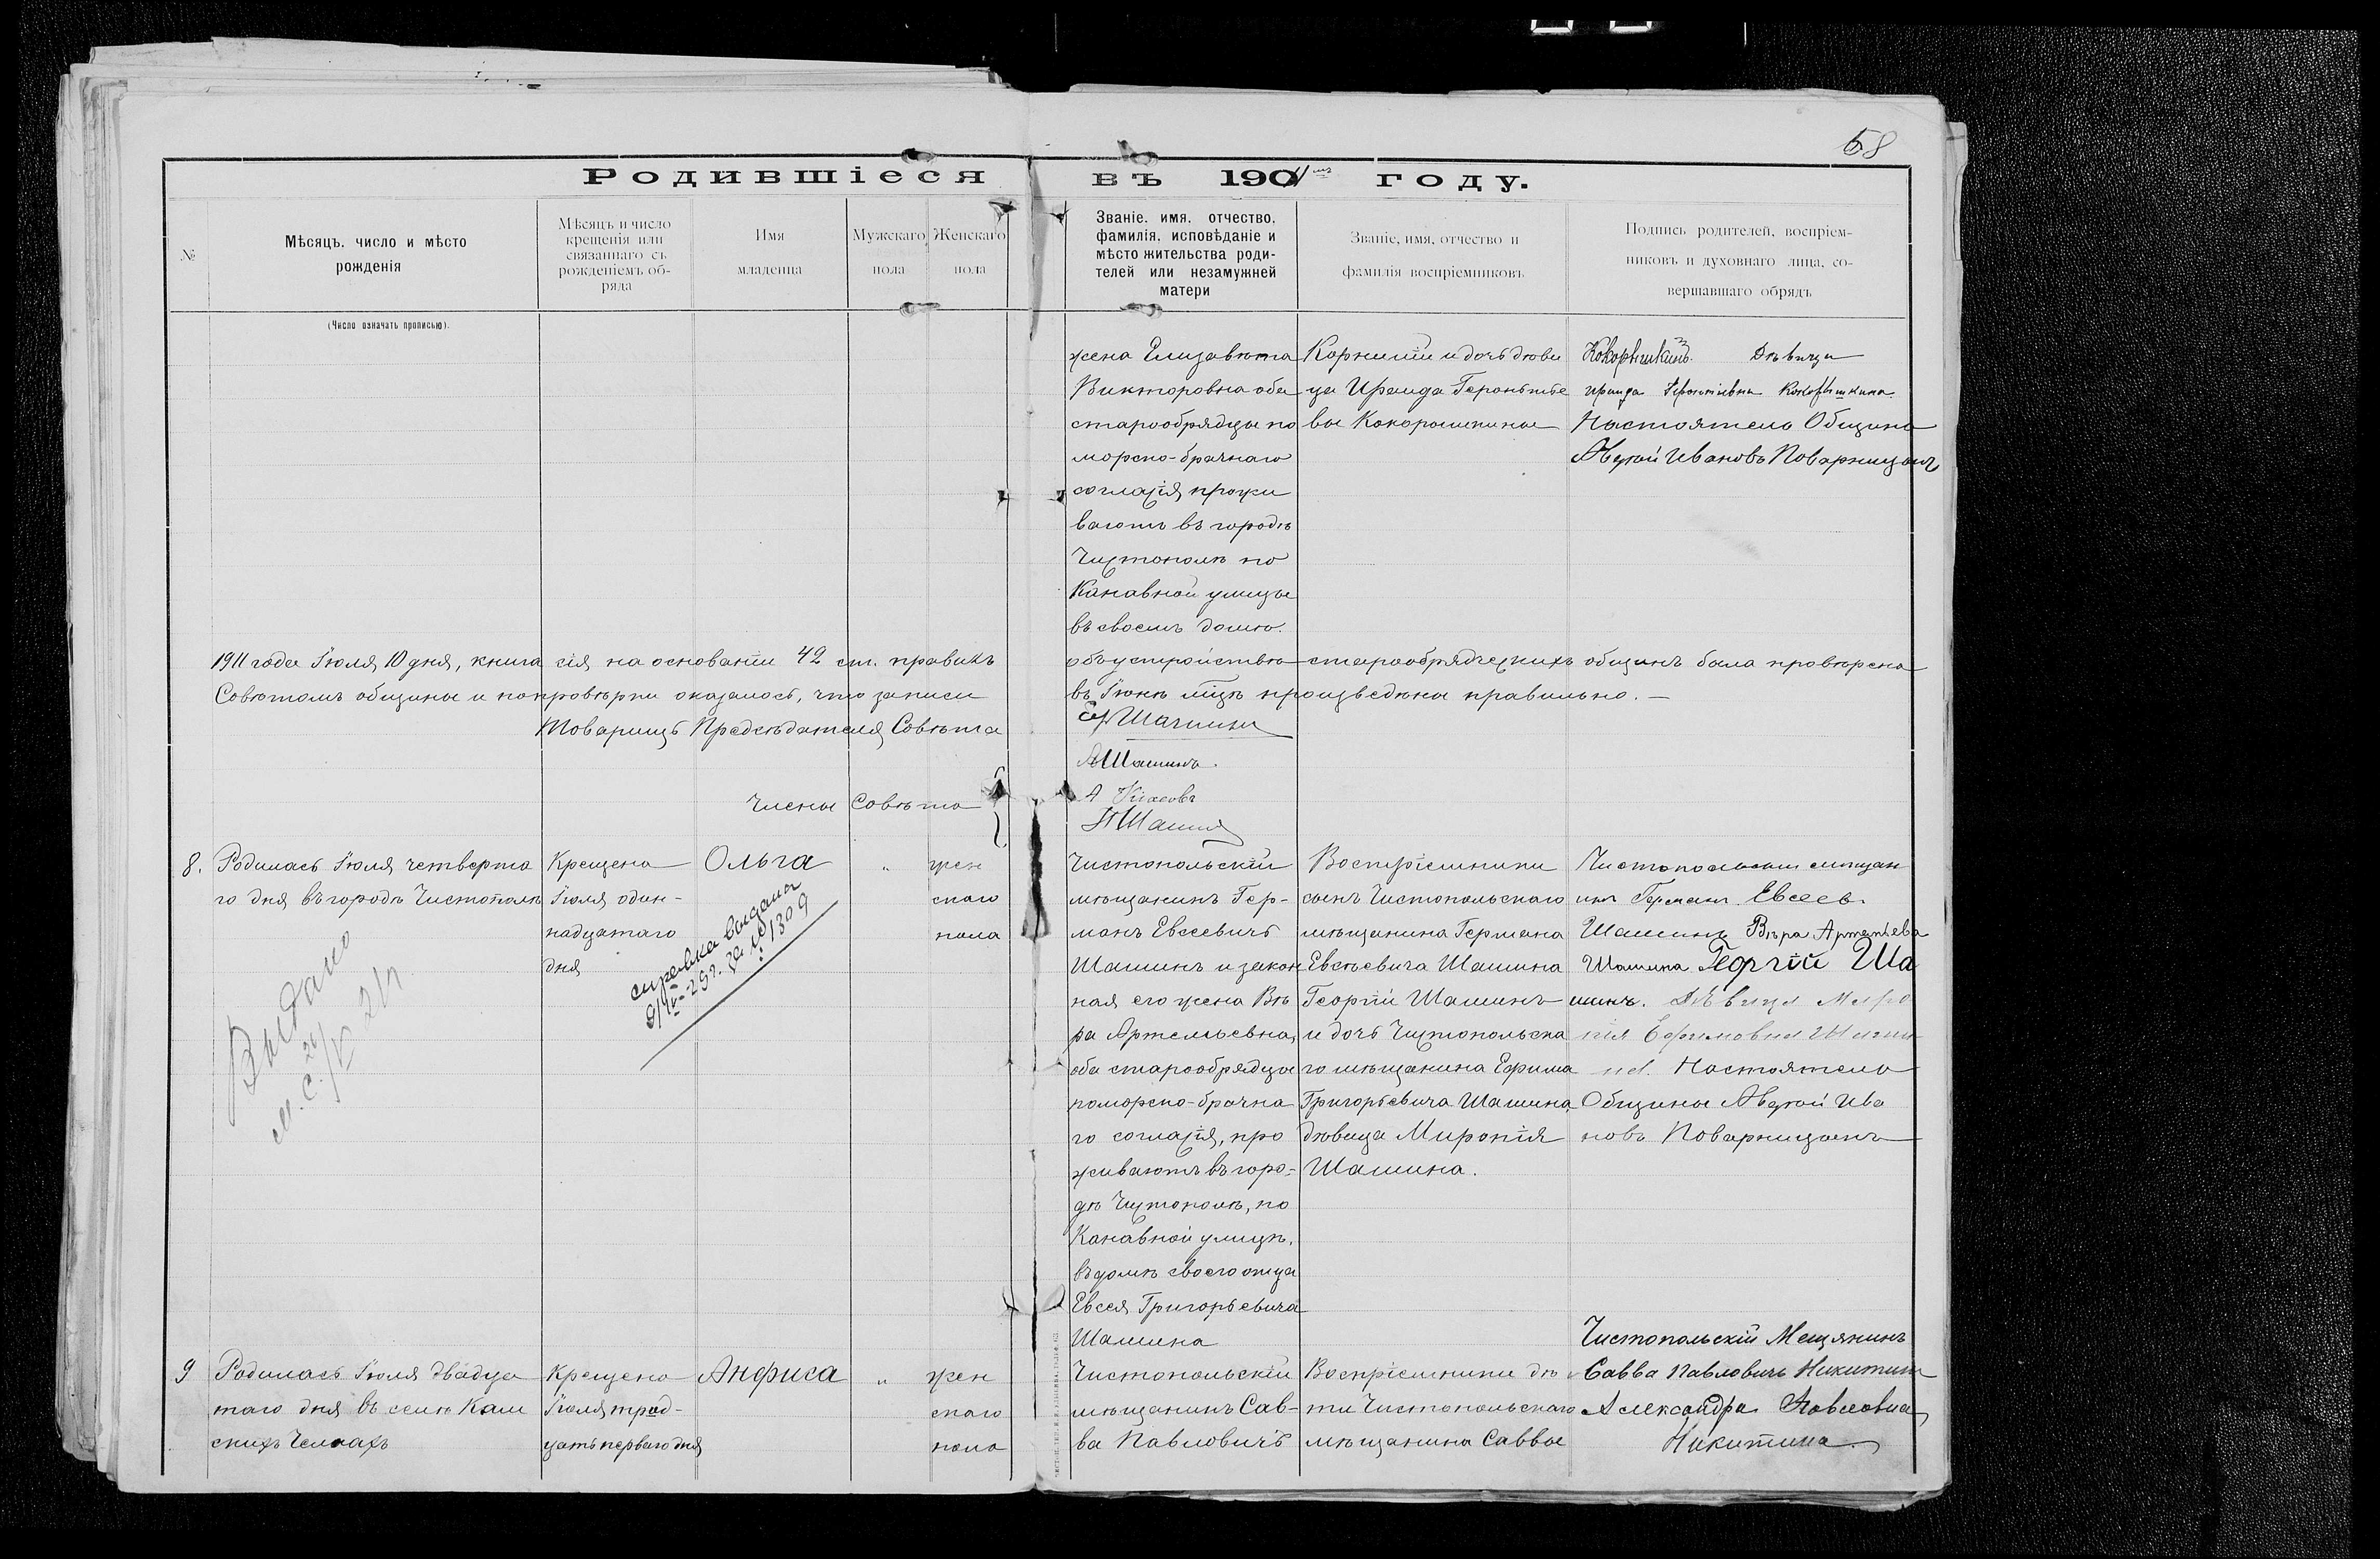 58
Родившіеся въ 1911мъ году.
№
Мѣсяцъ, число и мѣсто
рожденія
Мѣсяцъ и число
крещенія или
связаннаго съ
рожденіемъ об-
ряда
Имя
младенца
Мужскаго
пола
Женскаго
пола
Званіе, имя, отчество,
фамилія, исповѣданіе и
мѣсто жительства роди-
телей или незамужней
матери
Званіе, имя, отчество и
фамилія воспріемниковъ
Подпись родителей, воспріем-
никовъ и духовнаго лица, со-
вершавшаго обрядъ
(Число означать прописью).
жена Елизавѣта
Викторовна оба
старообрядцы по
морско-брачнаго
согласія, прожи
ваютъ въ городѣ
Чистополѣ по
Канавной улицѣ
въ своемъ домѣ.
Корнилій и дочь дѣви
ца Ираида Геронтье
вы Кокорышкины
Кокорышкинъ. Дѣвица
Ираида Геронтіевна Кокорышкина
Настоятель Общины
Авдѣй Ивановъ Поварницынъ
1911 года Іюля 10 дня, книга сія на основаніи 42 ст. правилъ объ устройствѣ старообрядческихъ общинъ была провѣрена
Совѣтомъ общины и по провѣрки оказалось, что записи въ Іюнѣ мцѣ произведены правильно. —
Товарищъ Предсѣдателя Совѣта
Шашинъ
АШашинъ.
Члены Совѣта
А
Шашинъ
8.
Родилась Іюля четверта
го дня въ городѣ Чистополѣ
Крещена
Іюля один-
надцатаго
дня
Ольга
"
жен
скаго
пола
Чистопольскій
мѣщанинъ Гер-
манъ Евсеевичъ
Шашинъ и закон
ная его жена Вѣ
ра Артемьевна,
оба старообрядцы
поморско-брачна
го согласія, про
живаютъ въ горо-
дѣ Чистополѣ, по
Канавной улицѣ,
въ домѣ своего отца
Евсея Григорьевича
Шашина
Воспріемники
сынъ Чистопольскаго
мѣщанина Германа
Евсѣевича Шашина
Георгій Шашинъ
и дочь Чистопольска
го мѣщанина Ефима
Григорьевича Шашина
дѣвица Миропія
Шашина.
Чистопольскій мѣщан
инъ Германъ Евсеев.
Шашинъ Вѣра Артемьева
Шашина Георгій Ша
шинъ. Дѣвица Миро
пія Ефимовна Шаши
на. Настоятель
Общины Авдѣй Ива
новъ Поварницынъ
справка выдана
9/IV-25г. за № 1309
Выдано
М. С.
9
Родилась Іюля двадца
таго дня въ селѣ Кам
скихъ Челнахъ
Крещена
Іюля трид-
цать перваго дня
Анфиса
"
жен
скаго
пола
Чистопольскій
мѣщанинъ Сав-
ва Павловичъ
Воспріемники дѣ
ти Чистопольскаго
мѣщанина Саввы
Чистопольскій Мещянинъ
Савва Павловичъ Никитин
Александра Павловна
Никитина